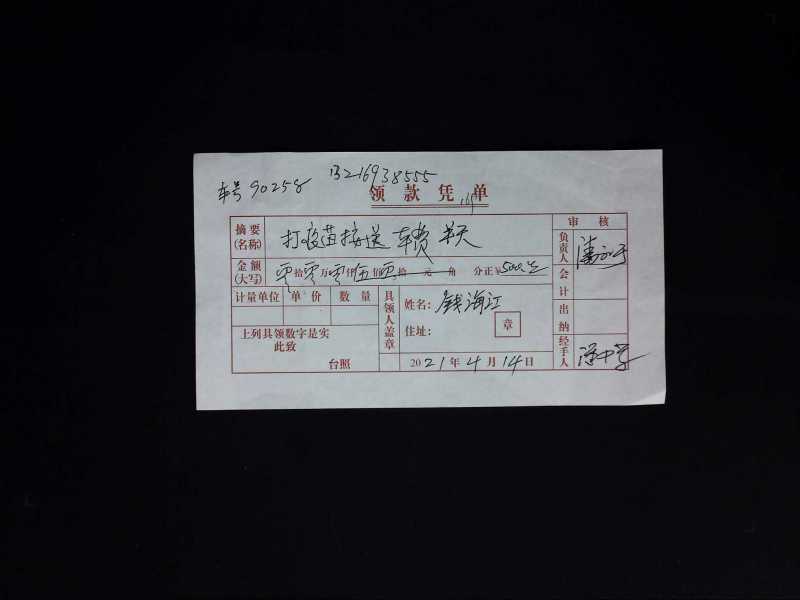 车号 90258 13216938555
领款凭单
摘要(名称) 打疫苗接送车费 半天
审核
金额(大写) 零拾零万零仟伍佰零拾元角分正¥500.00
负责人
计量单位 单价 数量
具领人盖章
姓名: 钱海江
会计
上列具领数字是实
此致
住址:
章
出纳
台照
2021年4月14日
经手人